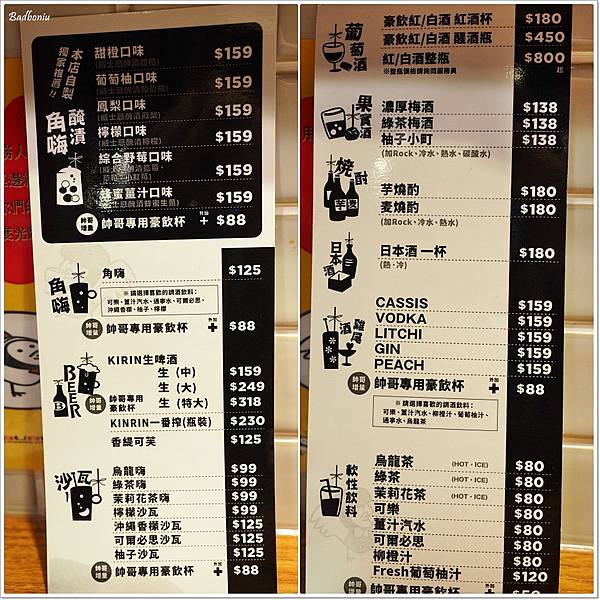 Badboniu
本店自製
獨家推薦!!
醃漬
角嗨
甜橙口味 $159
(威士忌醃漬甜橙)
葡萄柚口味 $159
(威士忌醃漬葡萄柚)
鳳梨口味 $159
(威士忌醃漬鳳梨)
檸檬口味 $159
(威士忌醃漬檸檬)
綜合野莓口味 $159
(威士忌醃漬藍莓、
草莓、小紅莓)
蜂蜜薑汁口味 $159
(威士忌醃漬蜂蜜生薑)
帥哥增量 帥哥專用豪飲杯 外加+ $88
角嗨
角嗨 $125
※請選擇喜歡的調酒飲料:
可樂、薑汁汽水、通寧水、可爾必思、
沖繩香檬、柚子、檸檬
帥哥增量 帥哥專用豪飲杯 外加+ $88
BEER
KIRIN生啤酒
生 (中) $159
生 (大) $249
帥哥增量 帥哥專用豪飲杯 生 (特大) $318
KINRIN一番搾(瓶裝) $230
香緹可芙 $125
沙瓦
烏龍嗨 $99
綠茶嗨 $99
茉莉花茶嗨 $99
檸檬沙瓦 $99
沖繩香檬沙瓦 $125
可爾必思沙瓦 $125
柚子沙瓦 $125
帥哥增量 帥哥專用豪飲杯 外加+ $88
葡萄酒
豪飲紅/白酒 紅酒杯 $180
豪飲紅/白酒 醒酒瓶 $450
紅/白酒整瓶 $800起
※整瓶價格請詢問服務員
果實酒
濃厚梅酒 $138
綠茶梅酒 $138
柚子小町 $138
(加Rock、冷水、熱水、碳酸水)
燒酎
芋 麦
芋燒酌 $180
麦燒酌 $180
(加Rock、冷水、熱水)
日本酒
日本酒 一杯 $180
(熱·冷)
雞尾酒
CASSIS $159
VODKA $159
LITCHI $159
GIN $159
PEACH $159
帥哥增量 帥哥專用豪飲杯 外加+ $88
※請選擇喜歡的調酒飲料:
可樂、薑汁汽水、柳橙汁、葡萄柚汁、
通寧水、烏龍茶
軟性飲料
烏龍茶 (HOT·ICE) $80
綠茶 (HOT·ICE) $80
茉莉花茶 (HOT·ICE) $80
可樂 $80
薑汁汽水 $80
可爾必思 $80
柳橙汁 $80
Fresh葡萄柚汁 $120
帥哥增量 帥哥專用豪飲杯 外加+ $50